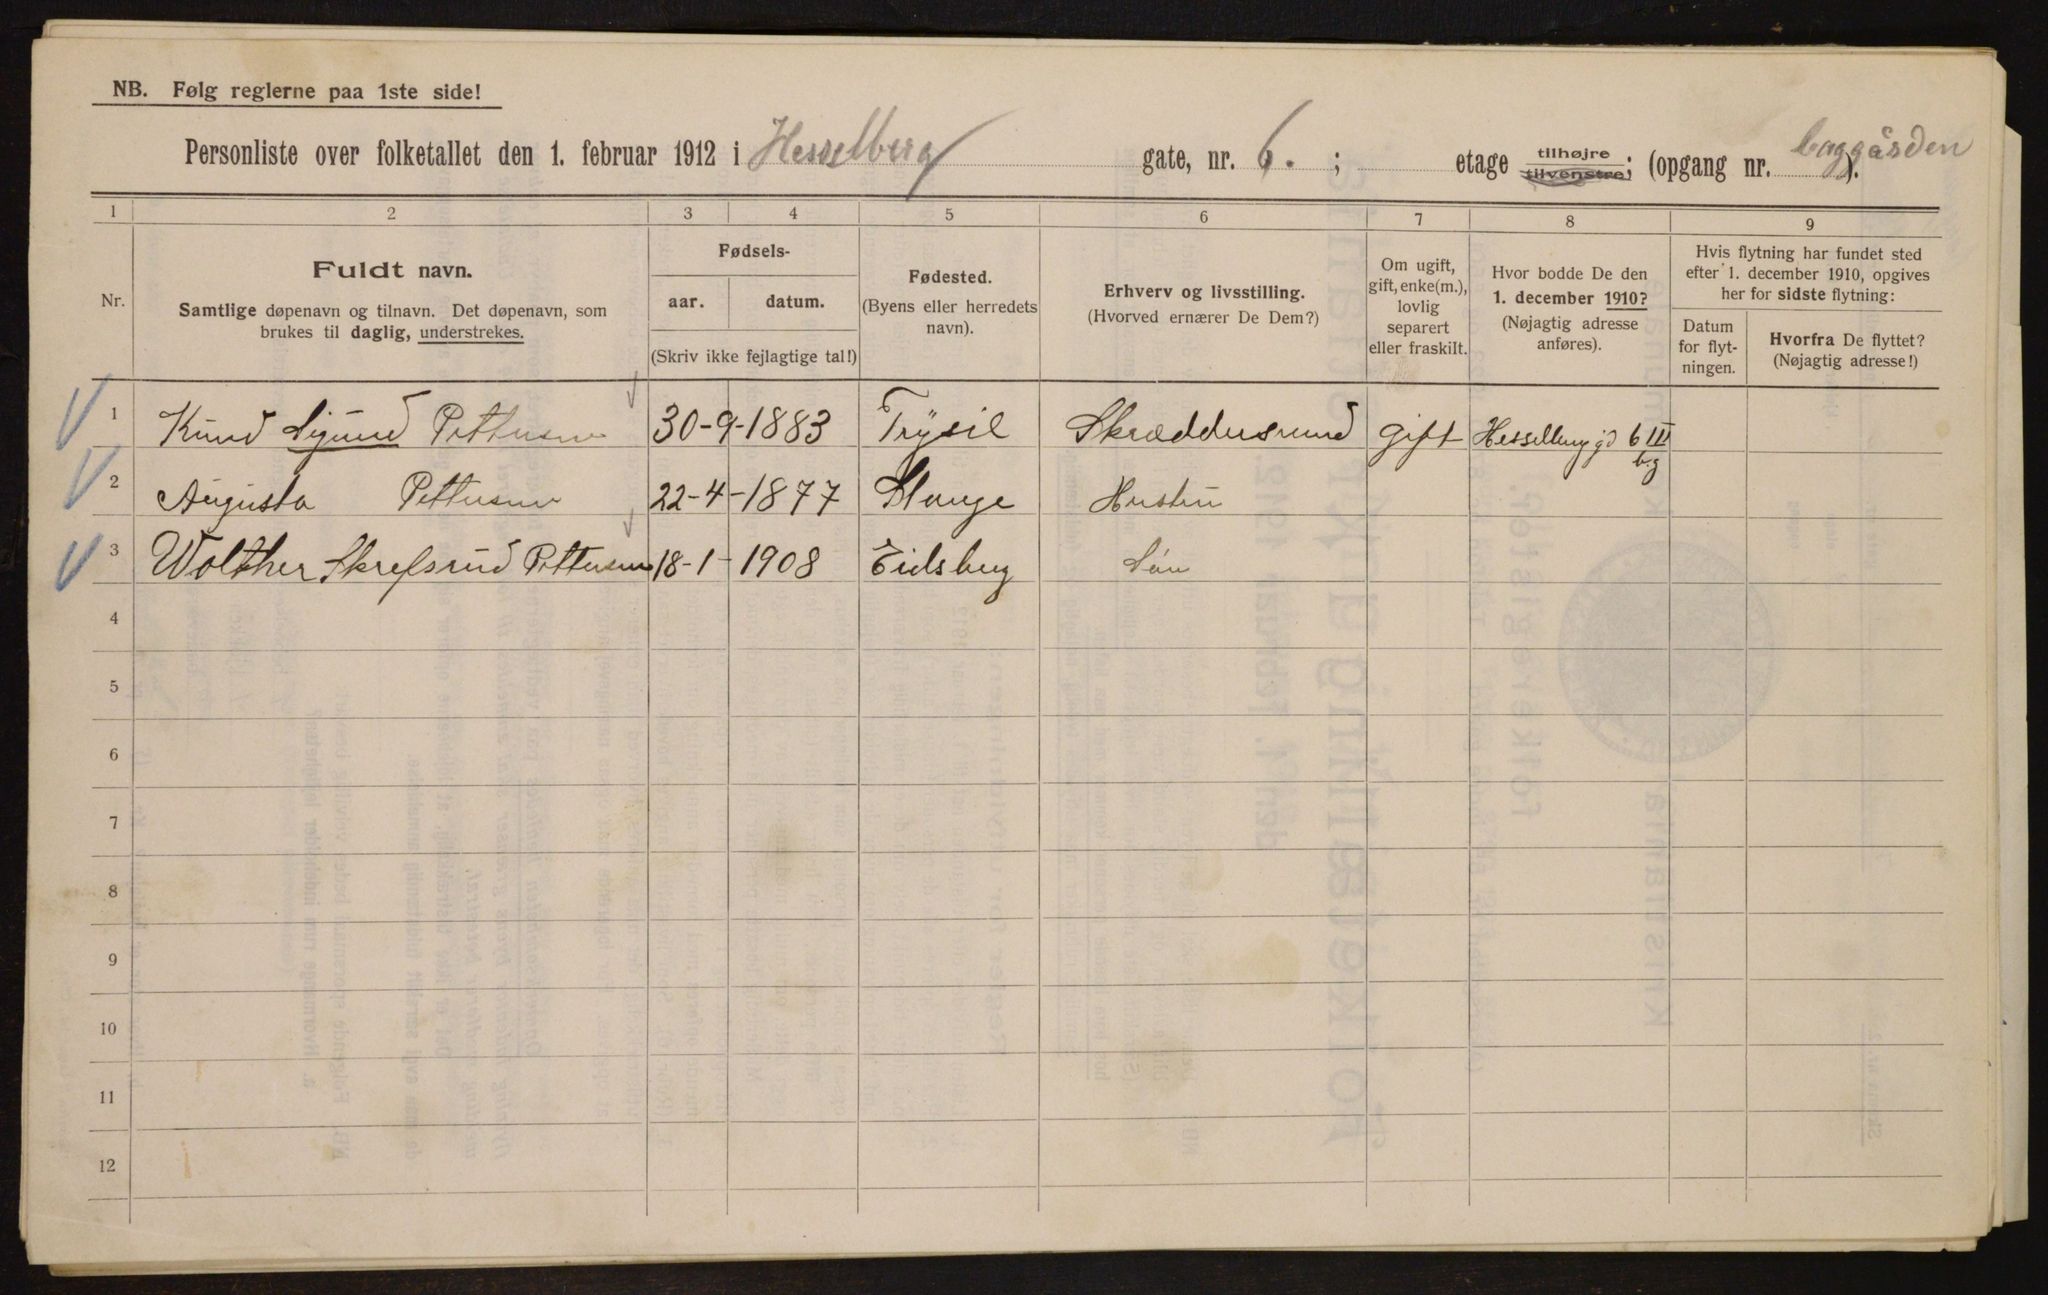 NB. Følg reglerne paa 1ste side!
Personliste over folketallet den 1. februar 1912 i Hesselberg gate, nr. 6. ; etage tilhøjre tilvenstre; (opgang nr. baggården).
1 2 3 4 5 6 7 8 9
Nr.
Fuldt navn.
Samtlige døpenavn og tilnavn. Det døpenavn, som
brukes til daglig, understrekes.
Fødsels-
aar. datum.
(Skriv ikke fejlagtige tal!)
Fødested.
(Byens eller herredets
navn).
Erhverv og livsstilling.
(Hvorved ernærer De Dem?)
Om ugift,
gift, enke(m.),
lovlig
separert
eller fraskilt.
Hvor bodde De den
1. december 1910?
(Nøjagtig adresse
anføres).
Hvis flytning har fundet sted
efter 1. december 1910, opgives
her for sidste flytning:
Datum
for flyt-
ningen.
Hvorfra De flyttet?
(Nøjagtig adresse!)
1 Knud Sigurd Pettersen 30-9-1883 Trysil Skræddersvend gift Hesselberg gd 6 III
bg
2 Augusta Pettersen 22-4-1877 Stange Hustru
3 Wolther Skrefsrud Pettersen 18-1-1908 Eidsberg Søn
4
5
6
7
8
9
10
11
12